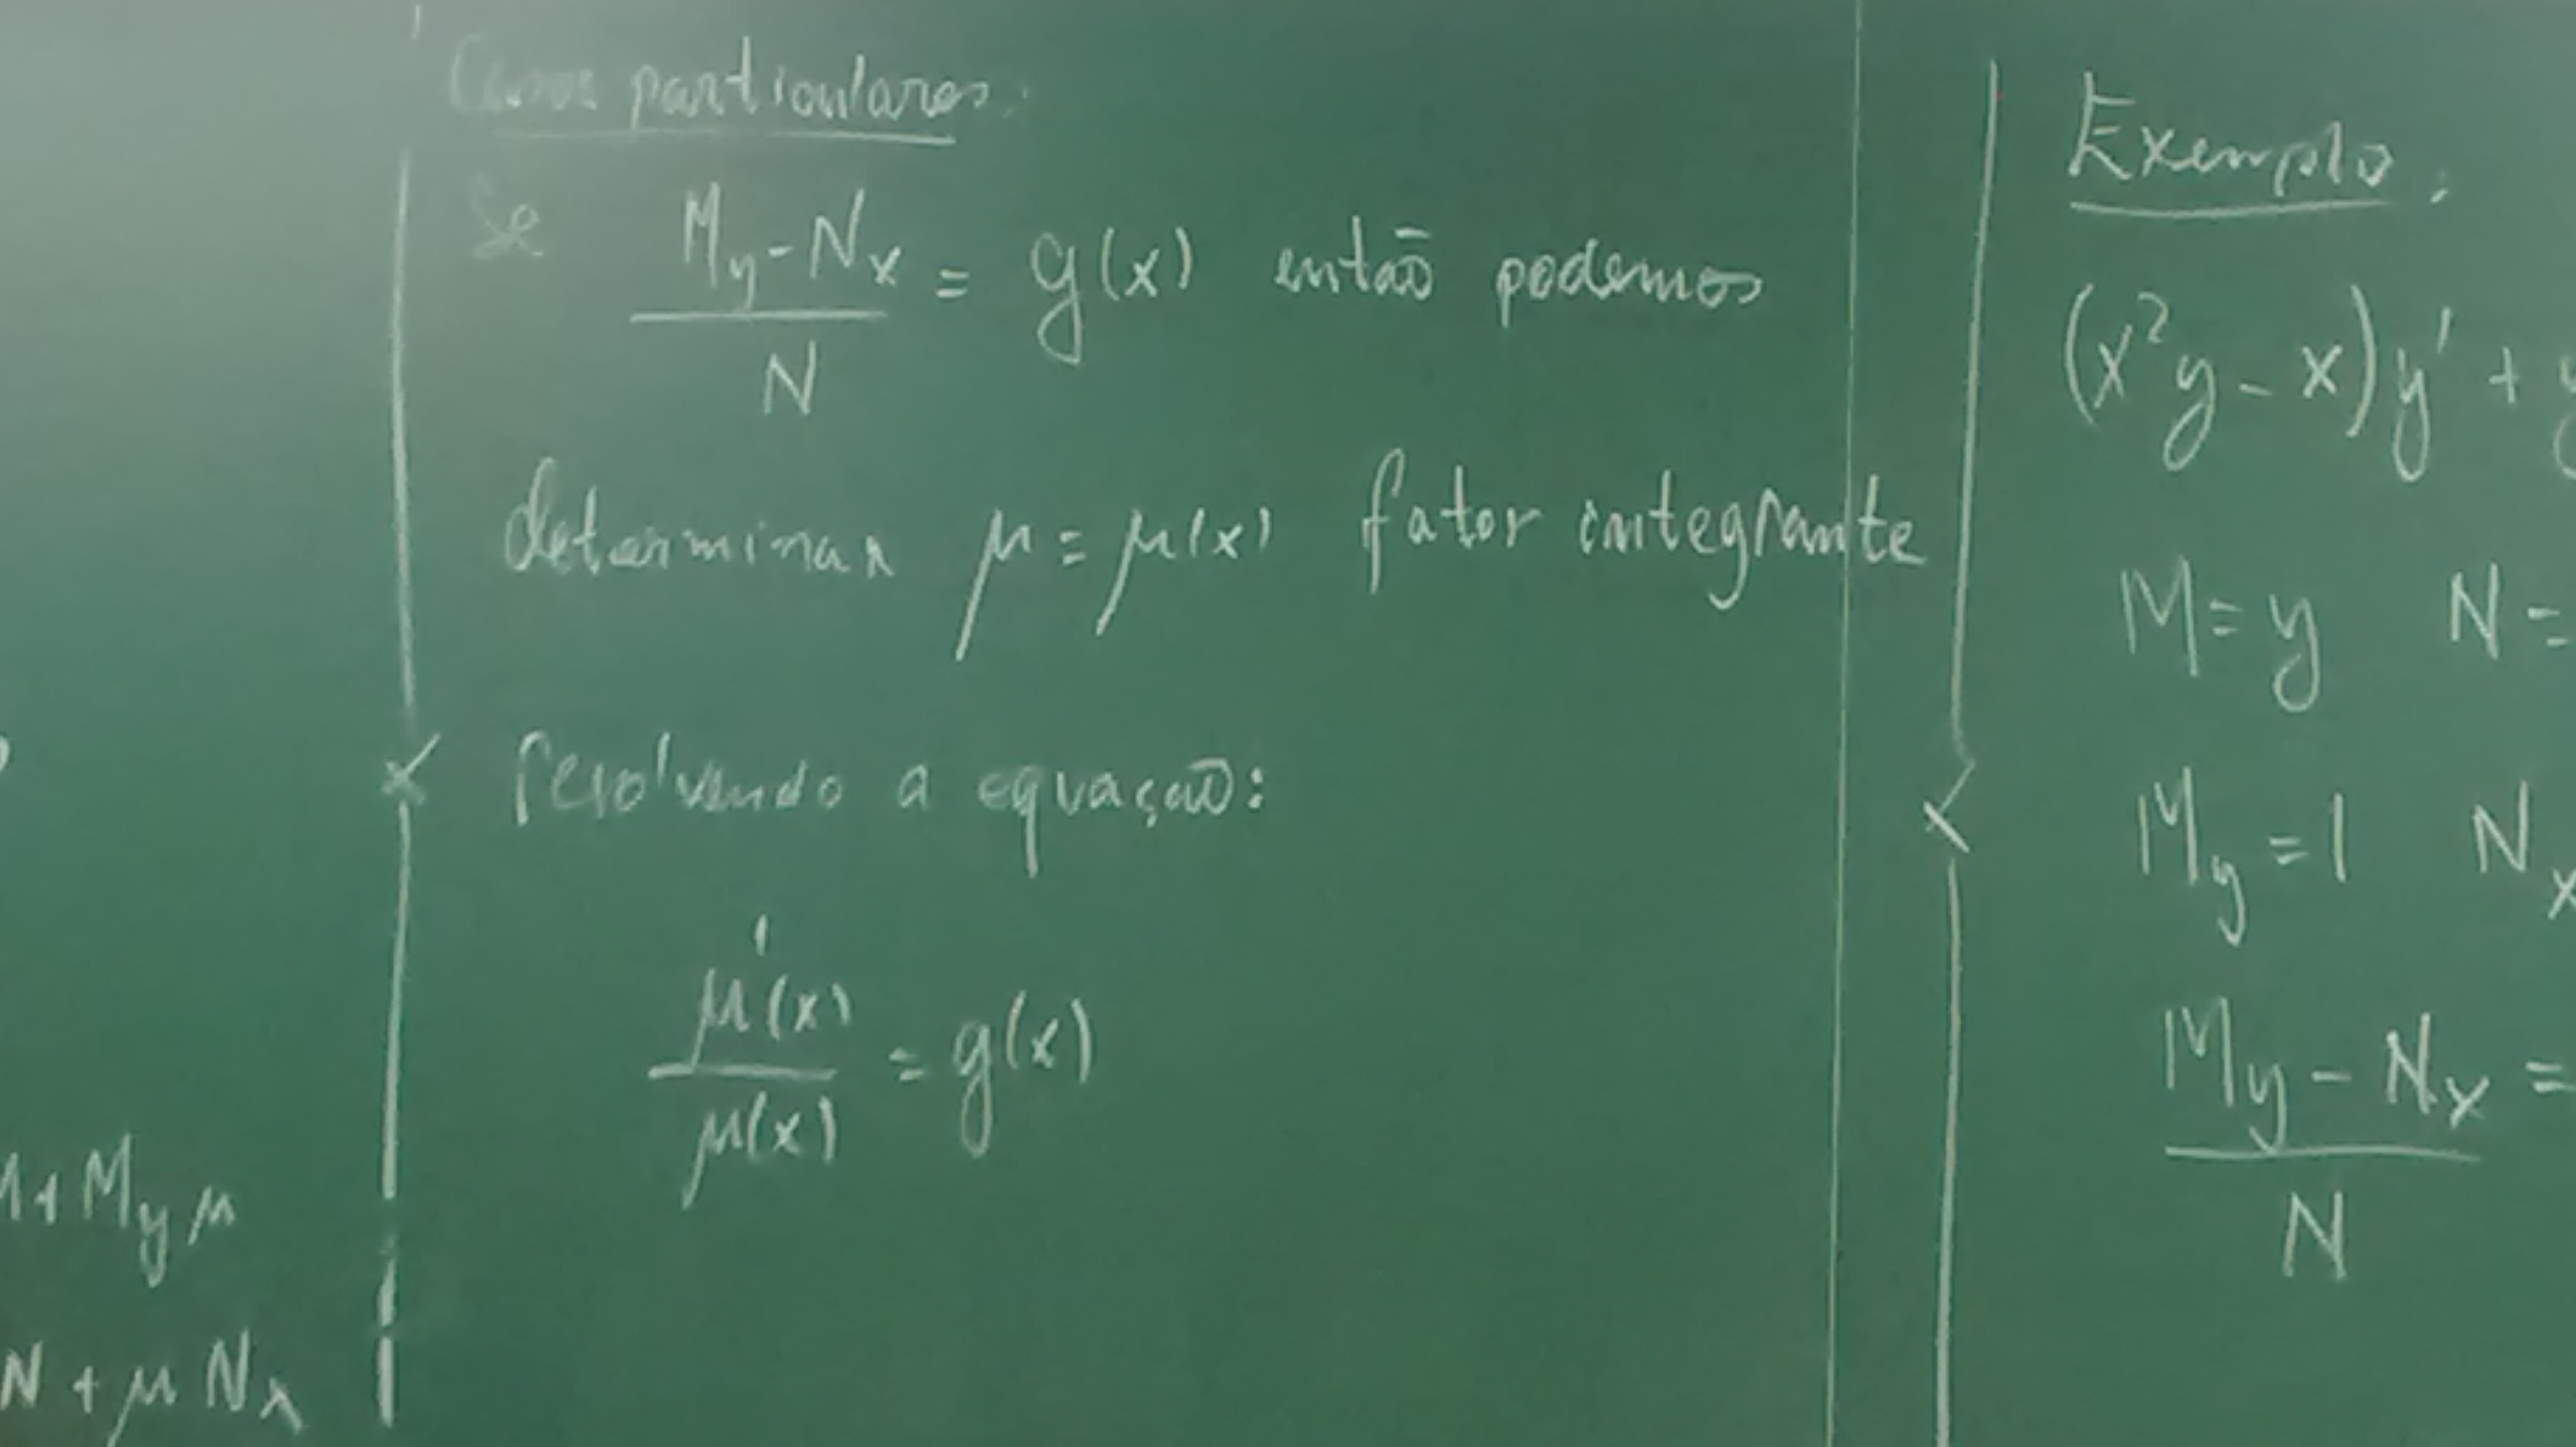 Casos particulares:
Se My - Nx / N = g(x) então podemos
determinar μ = μ(x) fator integrante
resolvendo a equação:
μ'(x) / μ(x) = g(x)
+ My μ
N + μ Nx
Exemplo:
(x²y - x)y' + y
M = y N =
My = 1 Nx
My - Nx / N =